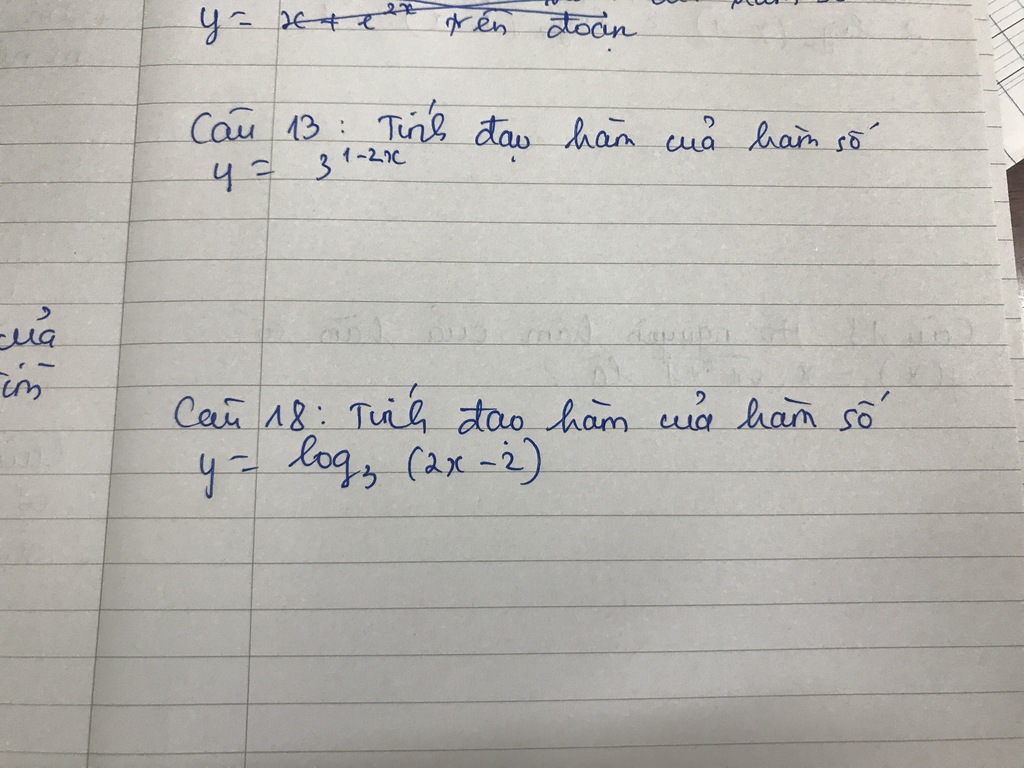 y = x + e^2x trên đoạn
Câu 13 : Tính đạo hàm của hàm số
y = 3^1-2x
của
Câu 18 : Tính đạo hàm của hàm số
y = log₃ (2x - 2)